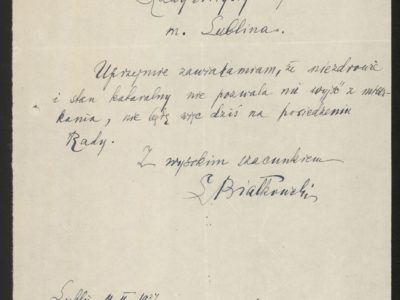 Rady
m. Lublina.
Uprzejmie zawiadamiam, że niezdrowie
i stan kataralny nie pozwala mi wyjść z miesz-
kania, nie będę więc dziś na posiedzeniu
Rady.
Z wysokim szacunkiem
L Białkowski